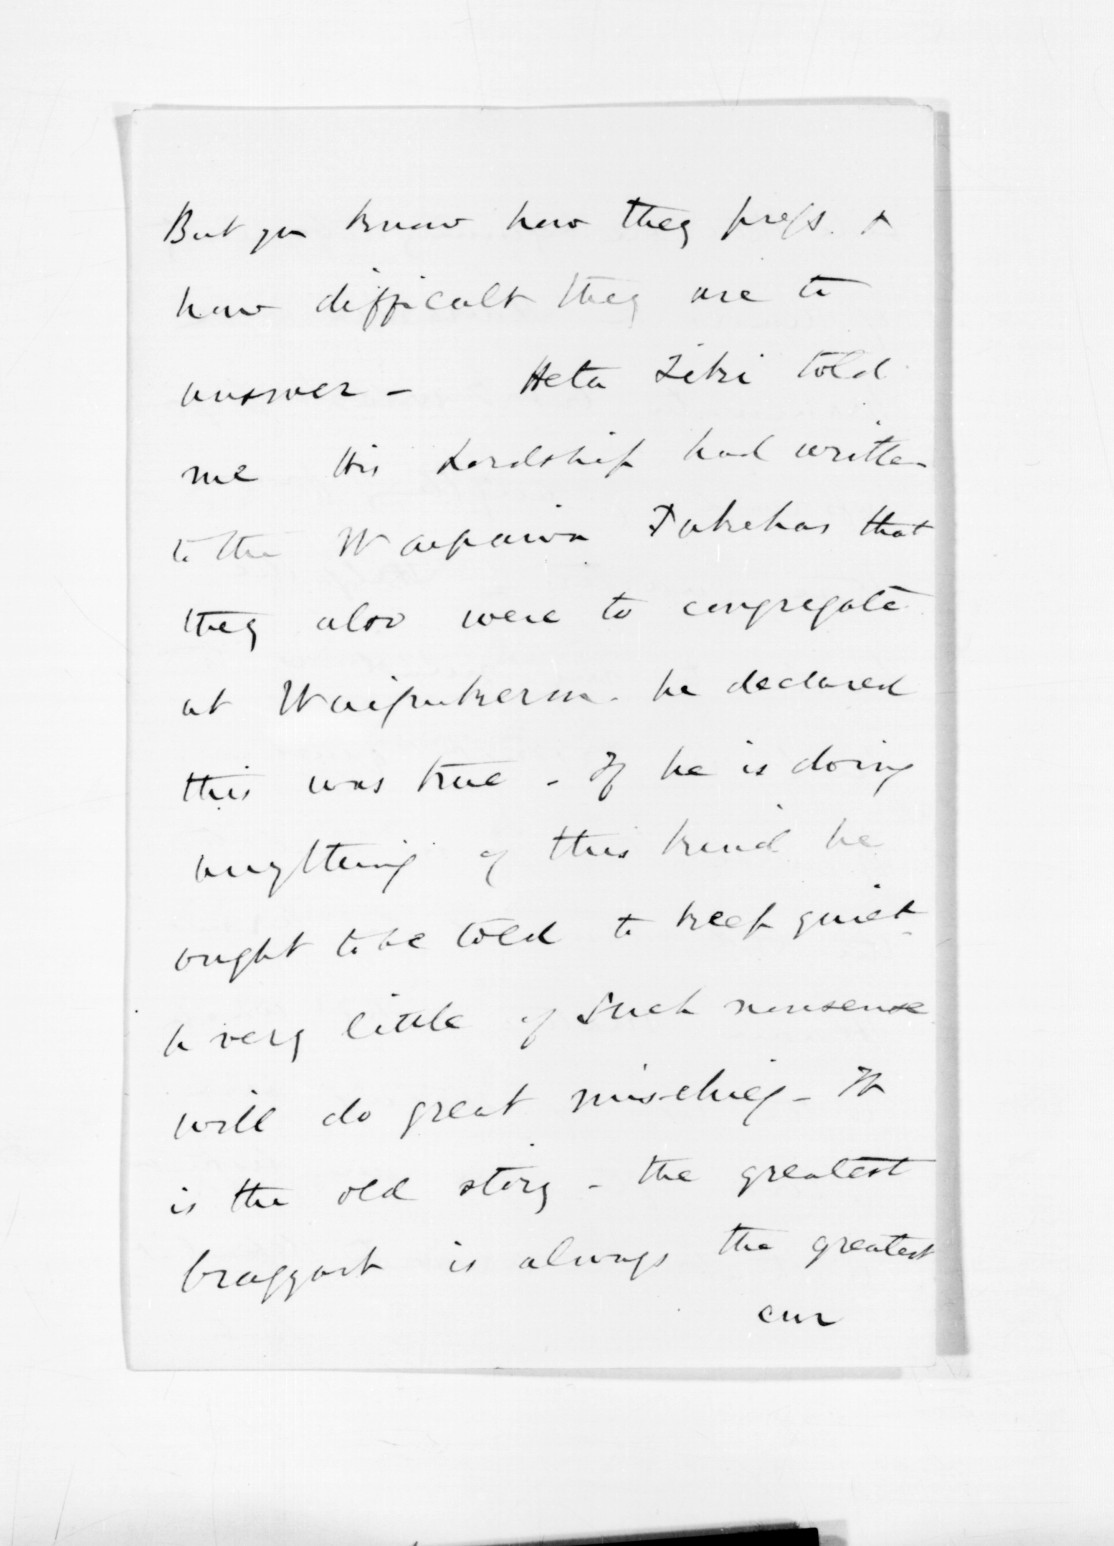 But you know how they press. &
how difficult they are to
answer - Heta Tiki told
me His Lordship had written
to the Waipawa Pakehas that
they also were to congregate
at Waipukerau. he declared
this was true - If he is doing
anything of this kind he
ought to be told to keep quiet.
A very little of such nonsense
will do great mischief - It
is the old story - the greatest
braggart is always the greatest
cur